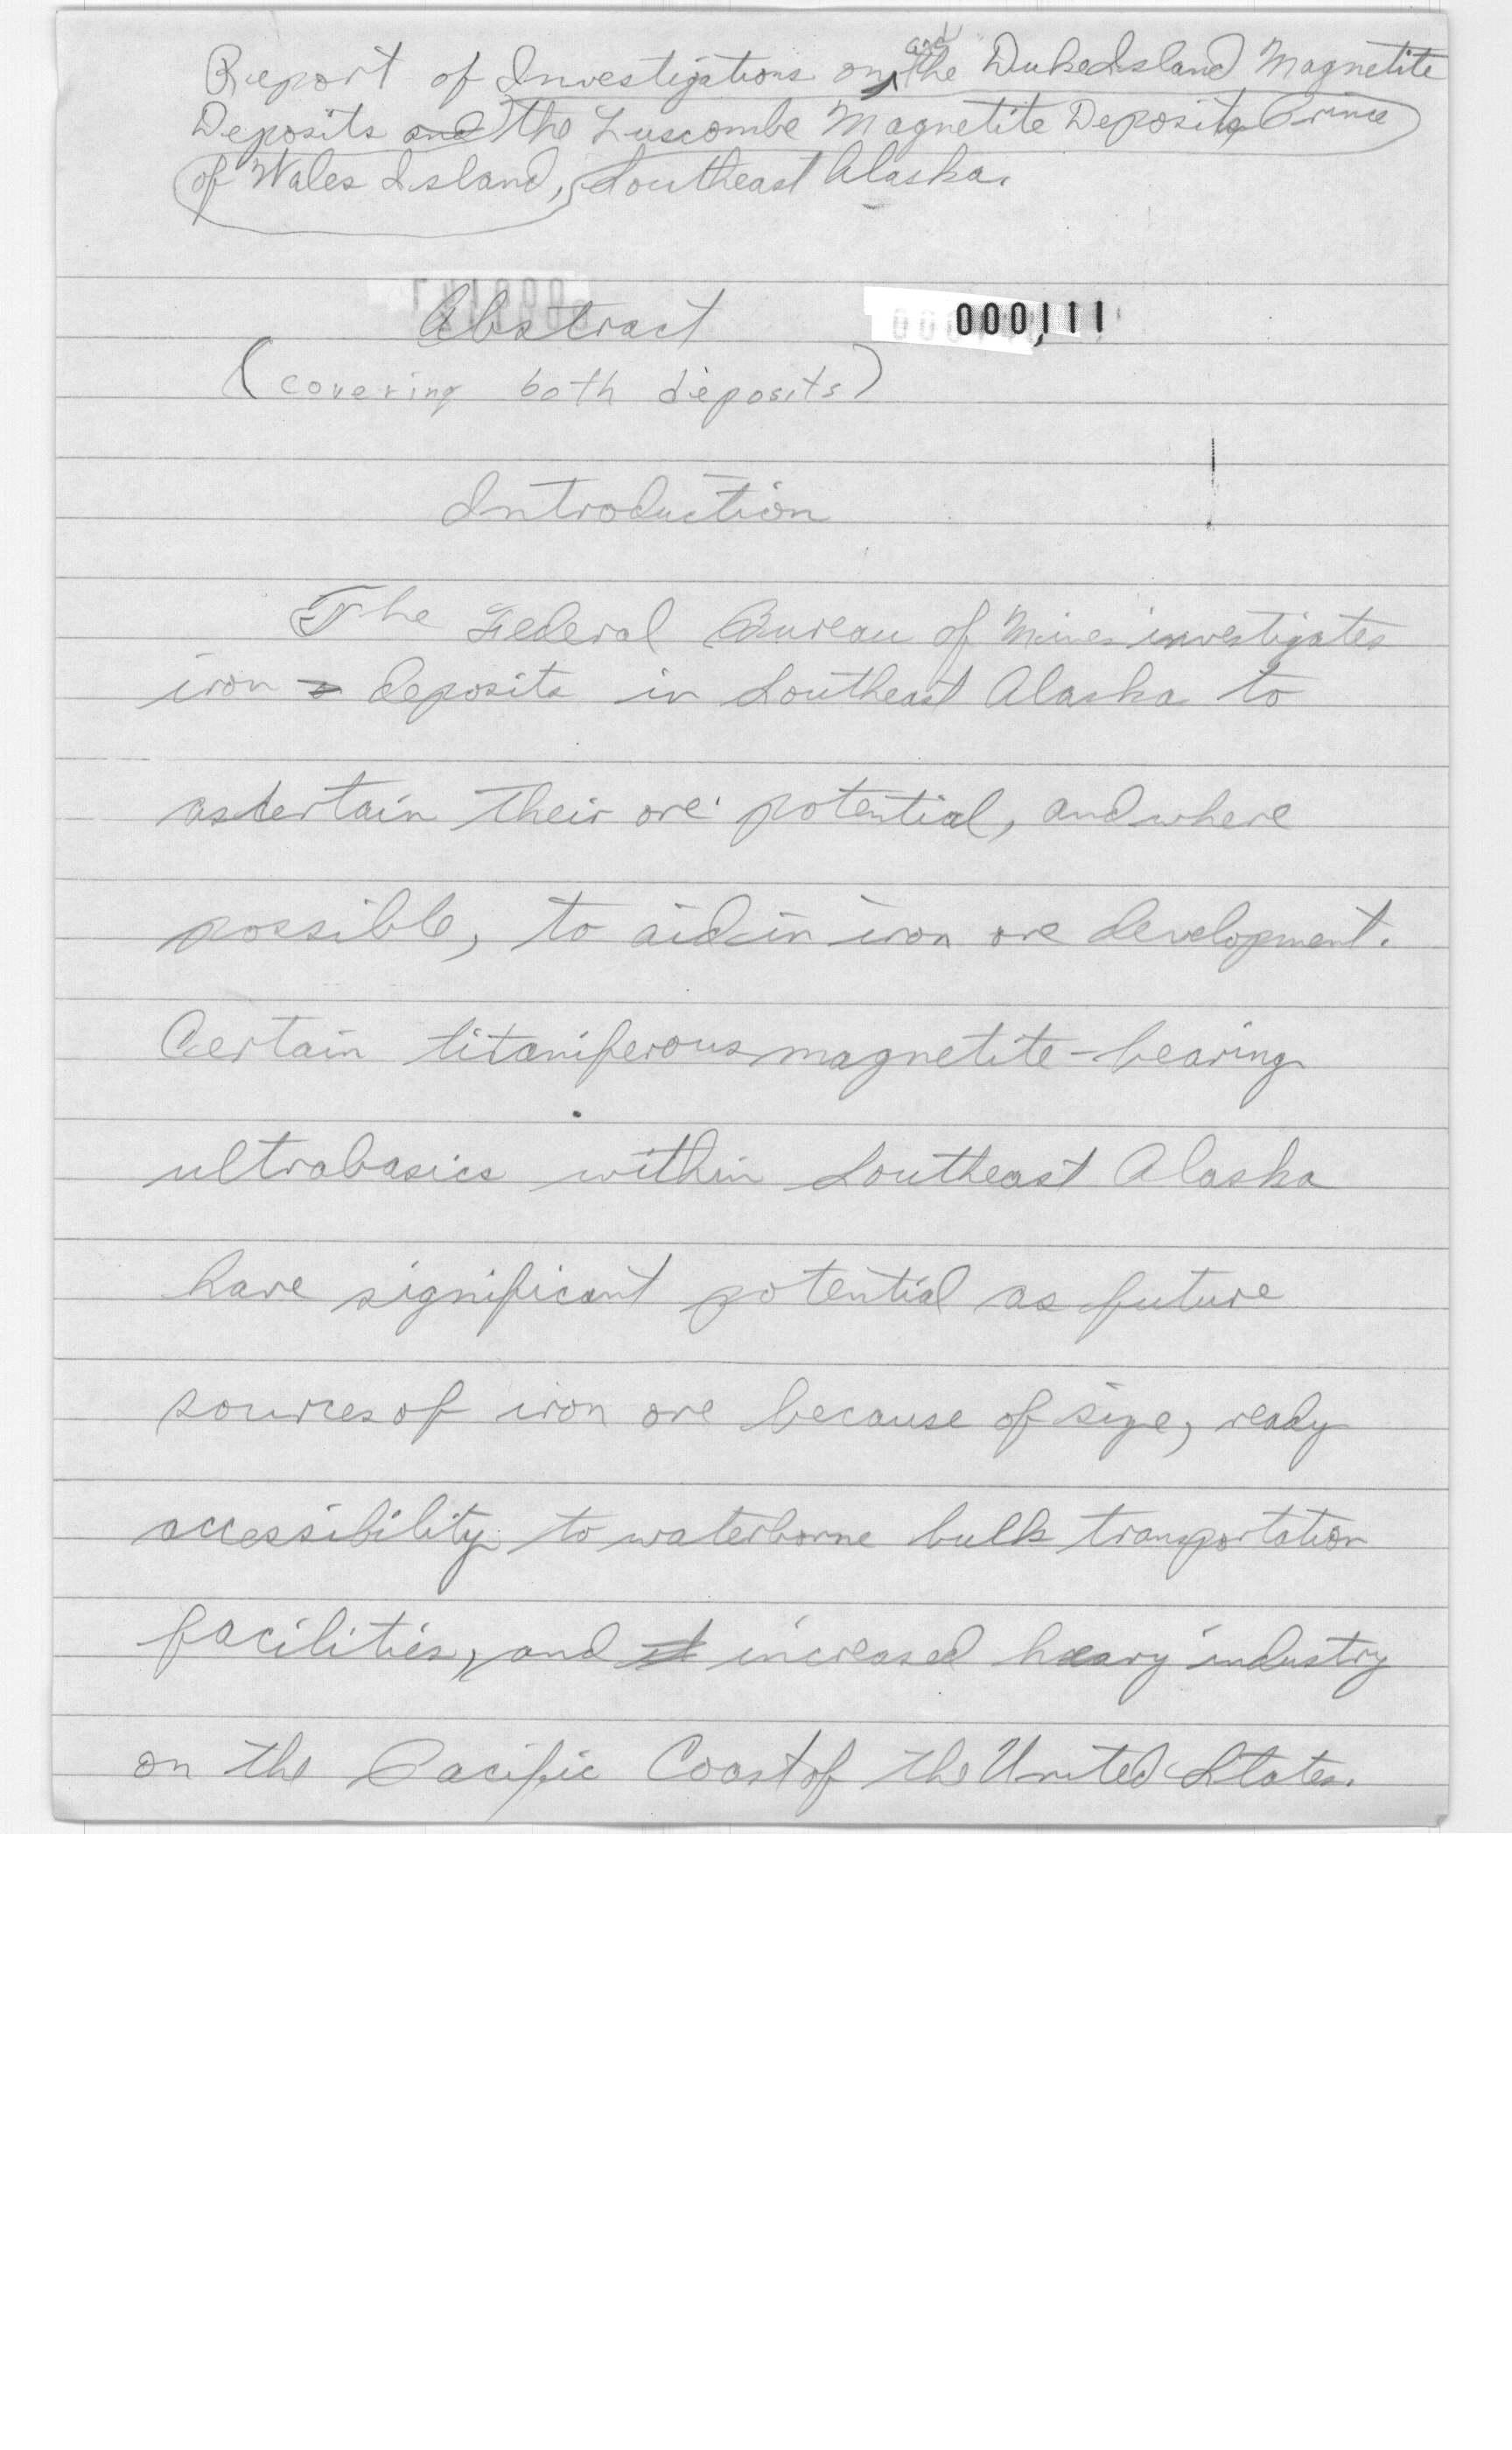 Report of Investigations on and the Duke Island Magnetite
Deposits and the Luscombe Magnetite Deposit, Prince
of Wales Island, Southeast Alaska.
Abstract
000,111
(covering both deposits)
Introduction
The Federal Bureau of Mines investigates
iron deposits in Southeast Alaska to
ascertain their ore potential, and where
possible, to aid in iron ore development.
Certain titaniferous magnetite-bearing
ultrabasics within Southeast Alaska
have significant potential as future
sources of iron ore because of size, ready
accessibility to waterborne bulk transportation
facilities, and increased heavy industry
on the Pacific Coast of the United States.